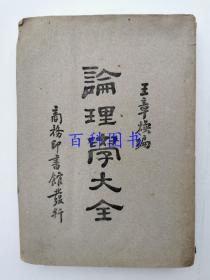 王章煥編
論理學大全
商務印書館發行
百科图书